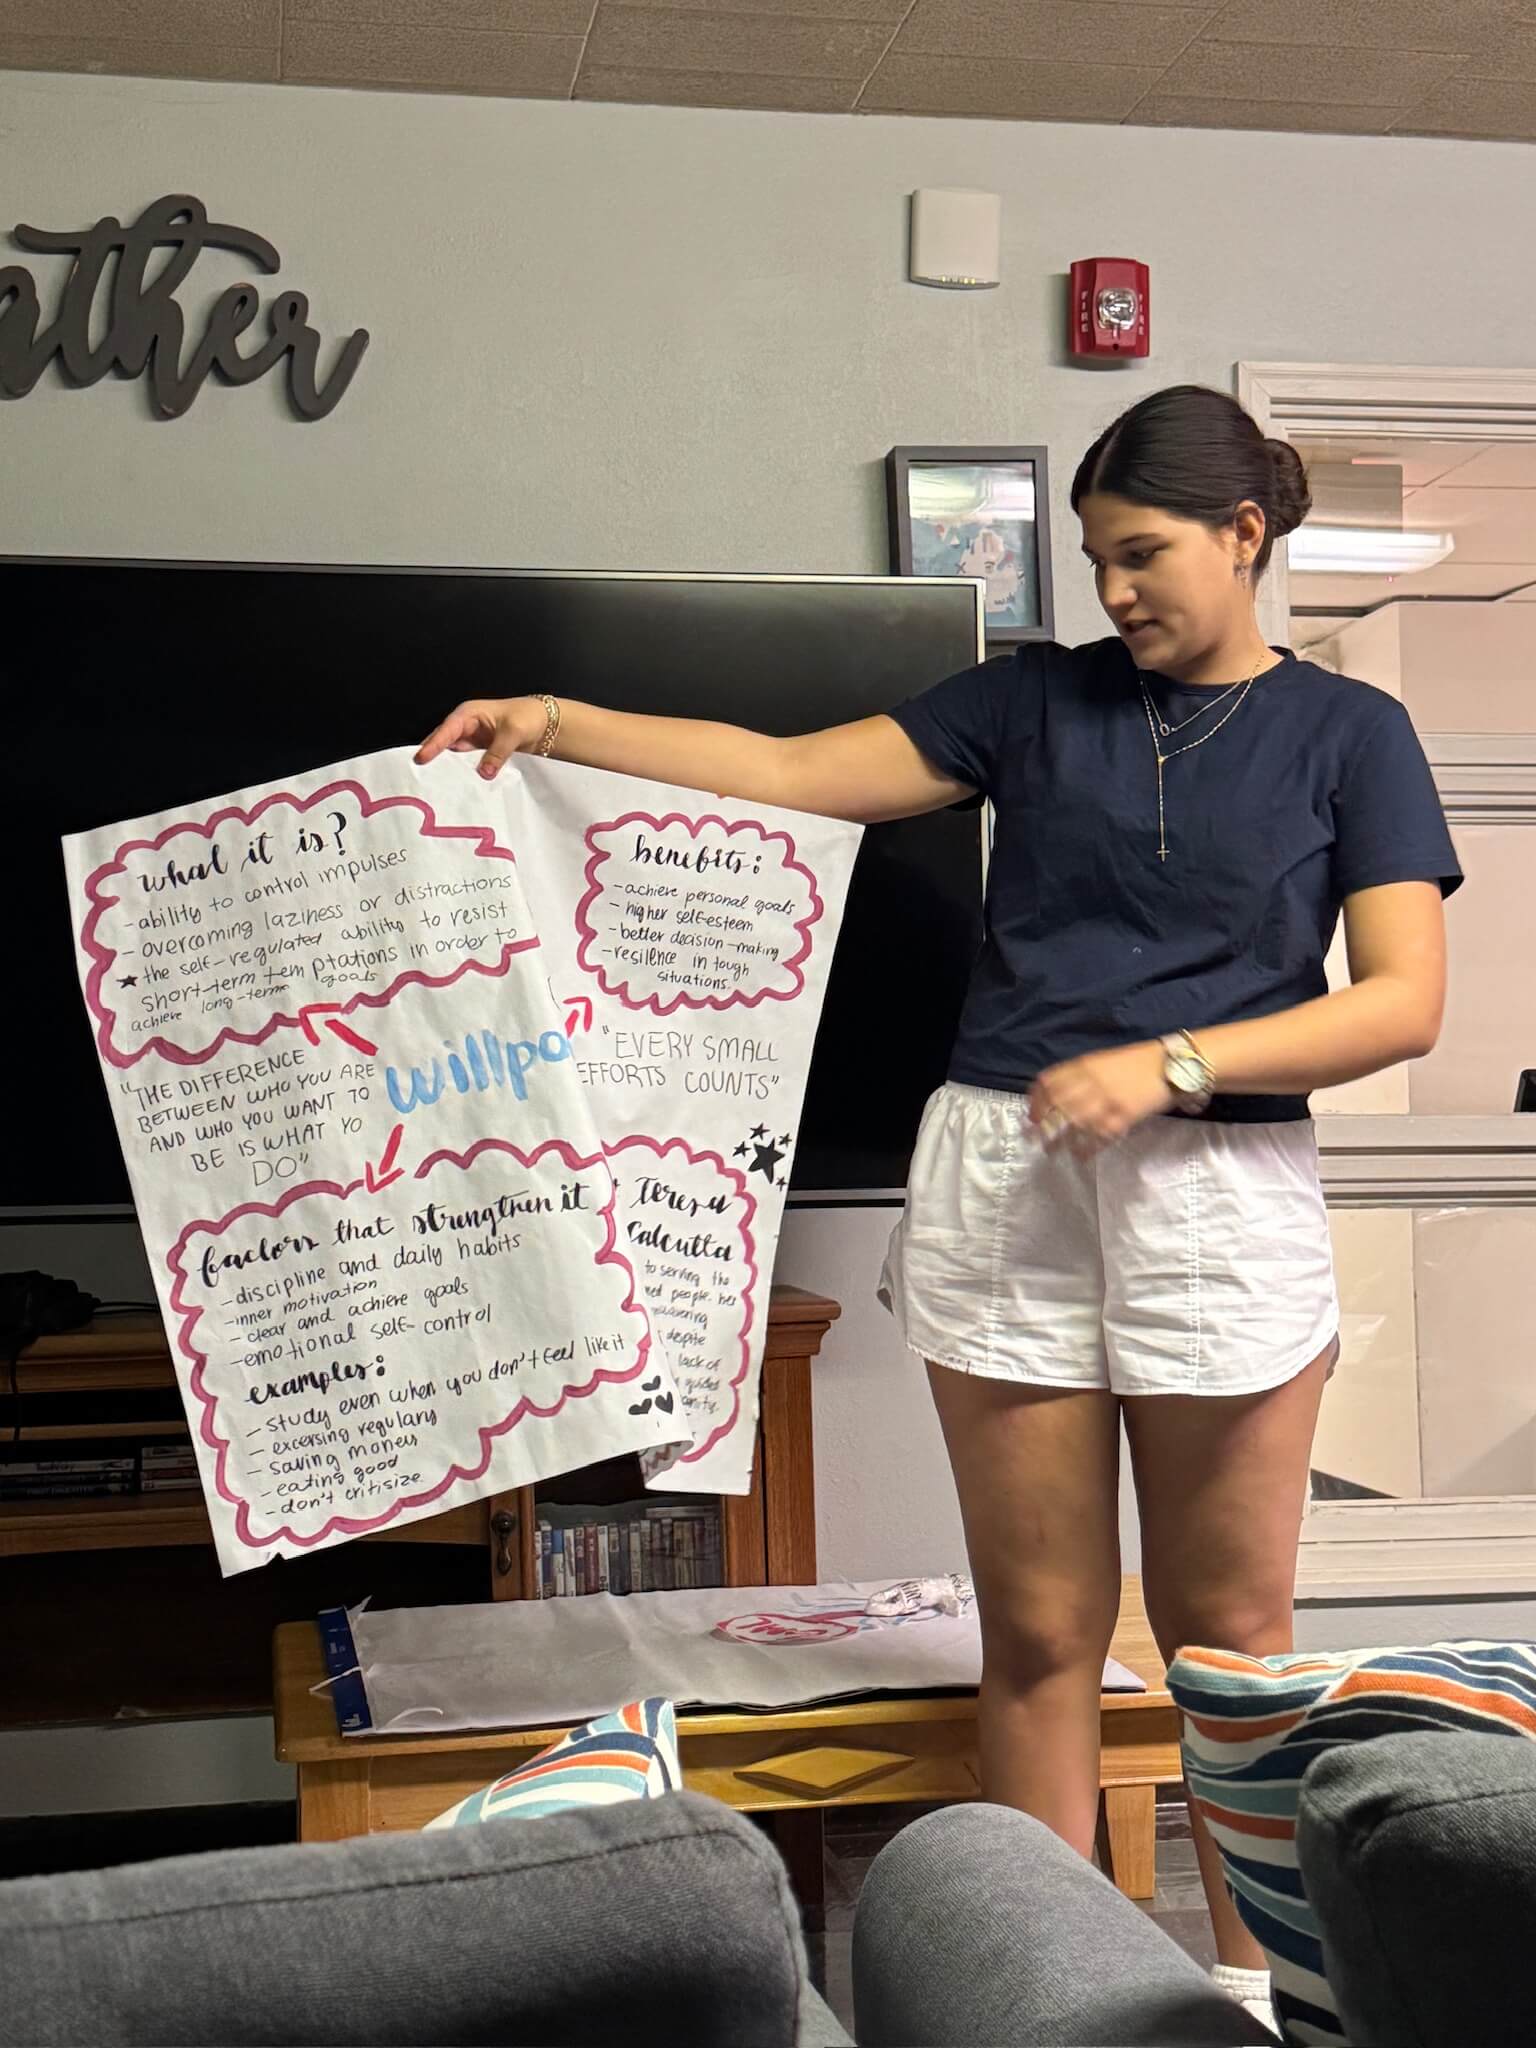 ather
FIRE
FIRE
what it is?
- ability to control impulses
- overcoming laziness or distractions
★ the self-regulated ability to resist
short-term temptations in order to
achieve long-term goals
benefits:
- achieve personal goals
- higher self-esteem
- better decision-making
- resilence in tough
situations.
willpo
"THE DIFFERENCE
BETWEEN WHO YOU ARE
AND WHO YOU WANT TO
BE IS WHAT YO
DO"
"EVERY SMALL
EFFORTS COUNTS"
factors that strengthen it
- discipline and daily habits
- inner motivation
- clear and achieve goals
- emotional self-control
examples:
- study even when you don't feel like it
- excersing regulary
- saving money
- eating good
- don't critisize.
Teresa
Calcutta
to serving the
people. her
despite
lack of
guided